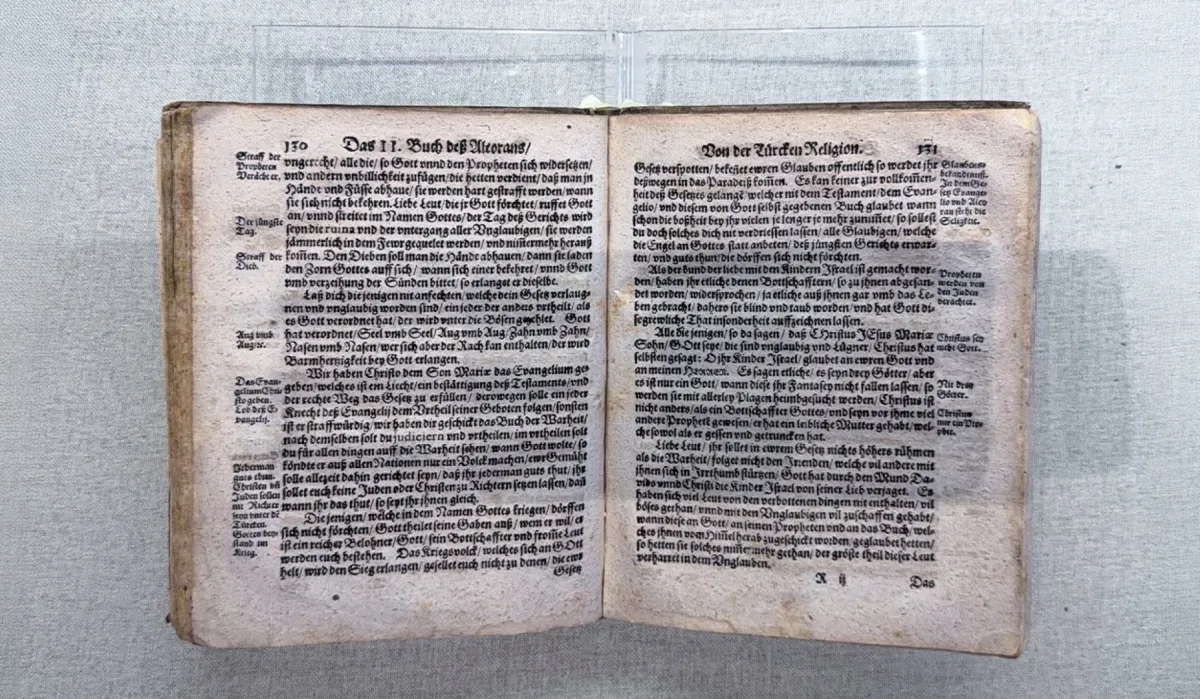 130
Das II. Buch deß Alcorans/
Straff der
Propheten
Verächter.
vngerecht/ alle die/ so Gott vnnd den Propheten sich widersetzen/
vnd andern vnbillichkeit zufügen/ die hetten verdient/ daß mã jn
Hände vnd Füsse abhaue/ sie werden hart gestrafft werden/ wann
sie sich nicht bekehren. Liebe Leut/ die jr Gott förchtet/ ruffet Gott
Der jüngste
Tag.
an/ vnnd streitet im Namen Gottes/ der Tag deß Gerichts wird
seyn die ruina vnd der vntergang aller Vnglaubigen/ sie werden
jämmerlich in dem Fewr gequelet werden/ vnd nim̃ermehr herauß
Straff der
Dieb.
kom̃en. Den Dieben soll man die Hände abhauen/ dann sie laden
den Zorn Gottes auff sich/ wann sich einer bekehret/ vnnd Gott
vmb verzeihung der Sünden bittet/ so erlanget er dieselbe.
Laß dich die jenigen nit anfechten/ welche dein Gesetz verlaug-
nen vnd vnglaubig worden sind/ ein jeder der anders vrtheilt/ als
es Gott verordnet hat/ der wird vnter die Bösen gezehlet. Gott
Aug vmb
Auge.
hat verordnet/ Seel vmb Seel/ Aug vmb Aug/ Zahn vmb Zahn/
Nasen vmb Nasen/ wer sich aber der Rach kan enthalten/ der wird
Barmhertzigkeit bey Gott erlangen.
Das Evan-
gelium Chri-
sto geben.
Lob deß E-
vangelij.
Wir haben Christo dem Son Mariæ das Evangelium ge-
geben/ welches ist ein Liecht/ ein bestättigung deß Testaments/ vnd
der rechte Weg das Gesetz zu erfüllen/ derowegen solle ein jeder
Knecht deß Evangelij dem Vrtheil seiner Geboten folgen/ sonsten
ist er straffwürdig/ wir haben dir geschickt das Buch der Warheit/
nach demselben solt du judiciern vnd vrtheilen/ im vrtheilen solt
du für allen dingen auff die Warheit sehen/ wann Gott wolte/ so
Jederman
guts thun.
Christen vñ
Juden sollen
nit Richter
seyn vnter dẽ
Türcken.
Gottes bey-
stand im
Krieg.
köndte er auß allen Nationen nur ein Volck machen/ ewr Gemüht
solle allezeit dahin gerichtet seyn/ daß jhr jederman guts thut/ jhr
sollet euch keine Juden oder Christen zu Richtern setzen lassen/ dañ
wann jhr das thut/ so seyt jhr jhnen gleich.
Die jenigen/ welche in dem Namen Gottes kriegen/ dörffen
sich nicht förchten/ Gott theilet seine Gaben auß/ wem er wil/ er
ist ein reicher Belohner/ Gott/ sein Bottschaffter vnd from̃e Leut
werden euch bestehen. Das Kriegsvolck/ welches sich an GOtt
helt/ wird den Sieg erlangen/ gesellet euch nicht zu denen/ die ewr
Gesetz
Von der Türcken Religion.
131
Gesetz verspotten/ bekeñet ewren Glauben offentlich so werdet jhr
deßwegen in das Paradeiß kom̃en. Es kan keiner zur vollkom̃en-
heit deß Gesetzes gelangẽ/ welcher mit dem Testament/ dem Evan-
gelio/ vnd diesem von Gott selbst gegebenen Buch glaubet wann
schon die boßheit bey jhr vielen je lenger je mehr zunim̃et/ so sollest
du doch solches dich nit verdriessen lassen/ alle Glaubigen/ welche
die Engel an Gottes statt anbeten/ deß jüngsten Gerichts erwar-
ten/ vnd guts thun/ die dörffen sich nicht förchten.
Glaubens-
bekandtnuß.
In dem Ge-
setz Evange-
lio vnd Alco
ran steht die
Seligkeit.
Als der bund der liebe mit den Kindern Israel ist gemacht wor-
den/ haben jhr etliche denen Bottschafftern/ so zu jhnen abgesan-
det worden/ widersprochen/ ja etliche auß jhnen gar vmb das Le-
ben gebracht/ dahero sie blind vnd taub worden/ vnd hat Gott di-
se grewliche That insonderheit auffzeichnen lassen.
Propheten
werden von
den Juden
verachtet.
Alle die jenigen/ so da sagen/ daß CHristus JEsus Mariæ
Sohn/ GOtt seye/ die sind vnglaubig vnd Lügner/ Christus hat
selbsten gesagt: O jhr Kinder Israel/ glaubet an ewren Gott vnd
an meinen HERREN. Es sagen etliche/ es seyn drey Götter/ aber
es ist nur ein Gott/ wann diese jhr Fantasey nicht fallen lassen/ so
werden sie mit allerley Plagen heimbgesucht werden/ Christus ist
nicht anders/ als ein Bottschaffter Gottes/ vnd seyn vor jhme viel
andere Prophetẽ gewesen/ er hat ein leibliche Mutter gehabt/ wel-
che sowol als er gessen vnd getruncken hat.
Christus sey
nicht Gott.
Nit drey
Götter.
Christus
nur ein Pro-
phet.
Liebe Leut/ jhr sollet in ewrem Gesetz nichts höhers rühmen
als die Warheit/ folget nicht den Irrenden/ welche vil andere mit
jhnen sich in Irrthumb stürtzen/ Gott hat durch den Mund Da-
vids vnnd Christi die Kinder Israel von seiner Lieb verjaget. Es
haben sich viel Leut von den verbottenen dingen nit enthalten/ vil
böses gethan/ vnnd mit den Vnglaubigen vil zuschaffen gehabt/
wann diese an Gott/ an seinen Propheten vnd an das Buch/ wel-
ches jhnen vom Him̃el herab zugeschickt worden/ geglaubet hetten/
so hetten sie solches nim̃er mehr gethan/ der größte theil dieser Leut
verharret in dem Vnglauben.
R ij
Das